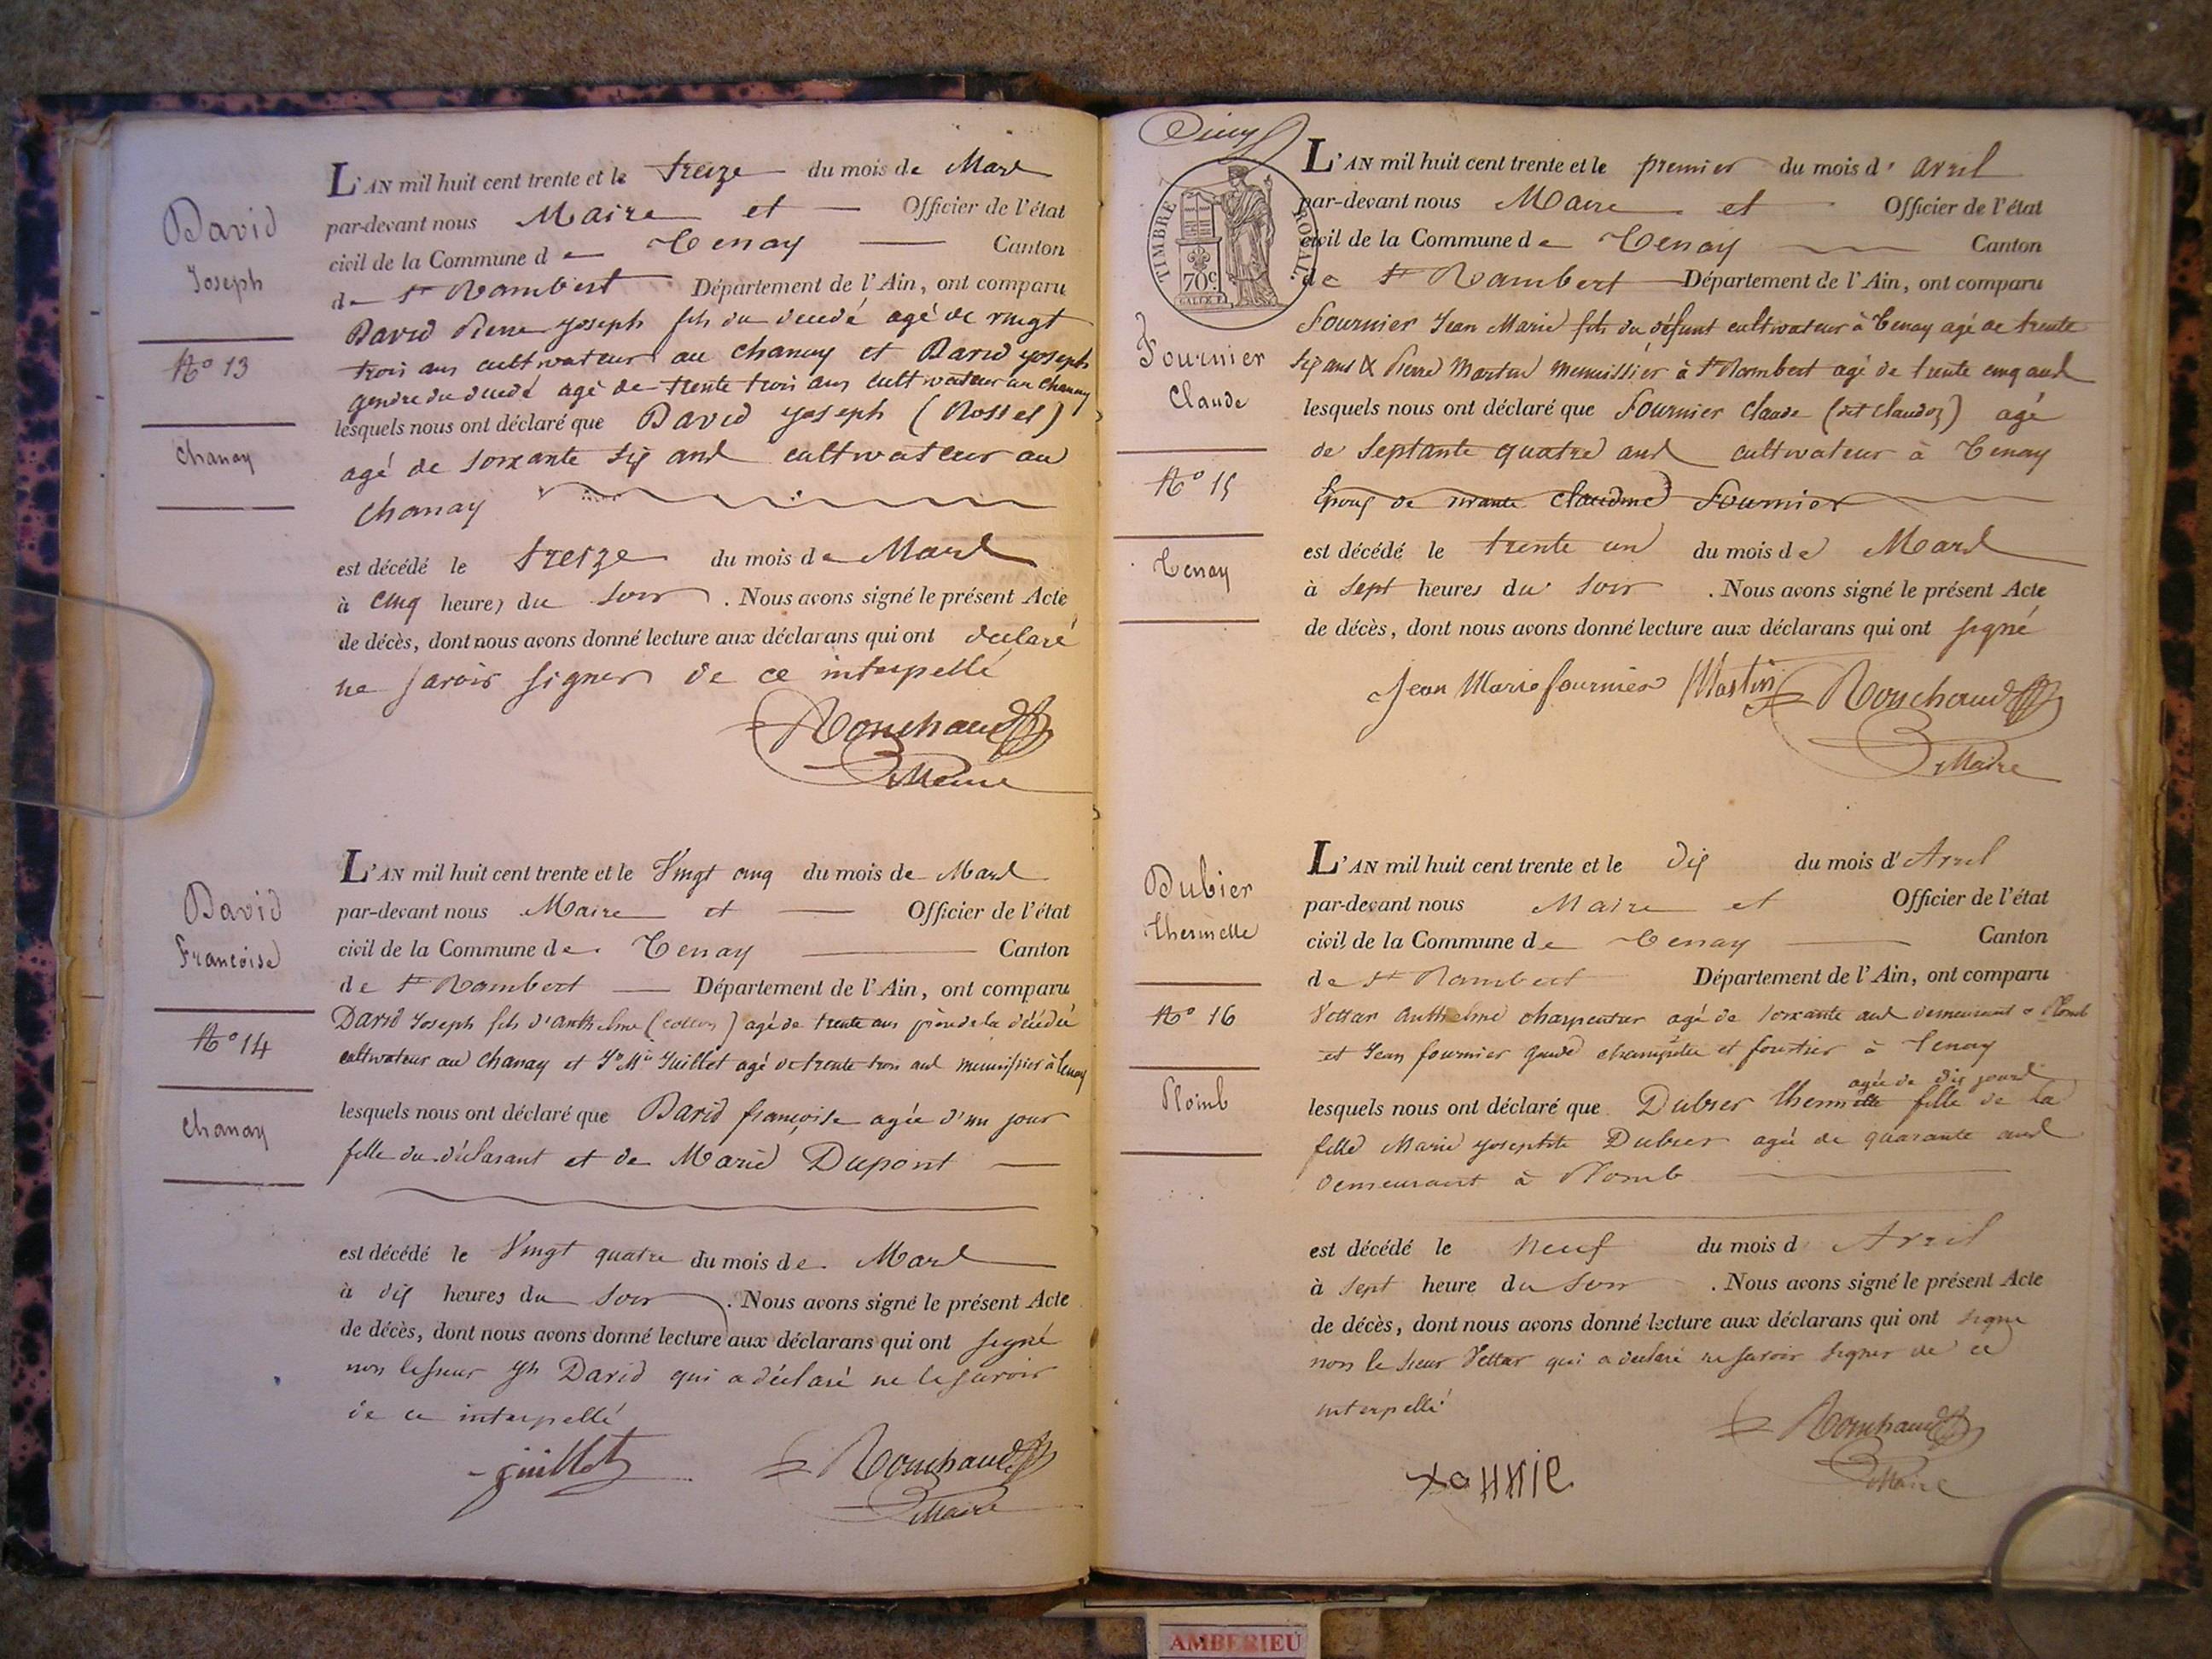 David
Joseph
No 13
Chanay
L'AN mil huit cent trente et le treize du mois de Mars
par-devant nous Maire et Officier de l'état
civil de la Commune de Tenay Canton
de St Rambert Département de l'Ain, ont comparu
David Pierre Joseph fils du décédé agé de vingt
trois ans cultivateur au Chanay et David Joseph
gendre du décédé agé de trente trois ans cultivateur au Chanay
lesquels nous ont déclaré que David Joseph (Rosset)
agé de soixante six ans cultivateur au
Chanay
est décédé le treize du mois de Mars
à cinq heures du soir. Nous avons signé le présent Acte
de décès, dont nous avons donné lecture aux déclarans qui ont déclaré
ne savoir signer de ce interpellé
Ronchaud
Maire
David
Francoise
No 14
Chanay
L'AN mil huit cent trente et le Vingt cinq du mois de Mars
par-devant nous Maire et Officier de l'état
civil de la Commune de Tenay Canton
de St Rambert Département de l'Ain, ont comparu
David Joseph fils d'anthelme agé de trente ans père de la décédée
cultivateur au Chanay et Jh Mie Juillet agé de trente trois ans menuissier à Tenay
lesquels nous ont déclaré que David françoise agée d'un jour
fille du déclarant et de Marie Dupont
est décédé le Vingt quatre du mois de Mars
à dix heures du soir. Nous avons signé le présent Acte
de décès, dont nous avons donné lecture aux déclarans qui ont signé
non le sieur Jh David qui a déclaré ne le savoir
de ce interpellé
juillet Ronchaud
Maire
TIMBRE ROYAL
70c
Fournier
Claude
No 15
Tenay
L'AN mil huit cent trente et le premier du mois d'avril
par-devant nous Maire et Officier de l'état
civil de la Commune de Tenay Canton
de St Rambert Département de l'Ain, ont comparu
Fournier Jean Marie fils du défunt cultivateur à Tenay agé de trente
six ans & Pierre Martin menuissier à St Rambert agé de trente cinq ans
lesquels nous ont déclaré que Fournier Claude (dit Claudoz) agé
de septante quatre ans cultivateur à Tenay
Epoux de vivante Claudine Fournier
est décédé le trente un du mois de Mars
à sept heures du soir. Nous avons signé le présent Acte
de décès, dont nous avons donné lecture aux déclarans qui ont signé
Jean Marie fournier Martin Ronchaud
Maire
Dubier
Thermelle
No 16
Plomb
L'AN mil huit cent trente et le dix du mois d'Avril
par-devant nous Maire et Officier de l'état
civil de la Commune de Tenay Canton
de St Rambert Département de l'Ain, ont comparu
Vettar anthelme charpentier agé de soixante ans demeurant a Plomb
et Jean fournier garde champêtre et forestier à Tenay
agée de dix jours
lesquels nous ont déclaré que Dubier thermelle fille de la
fille Marie josephte Dubier agée de quarante ans
demeurant à Plomb
est décédé le neuf du mois d Avril
à sept heure du soir. Nous avons signé le présent Acte
de décès, dont nous avons donné lecture aux déclarans qui ont signé
non le sieur Vettar qui a déclaré ne savoir signer de ce
interpellé
Ronchaud
Maire
AMBERIEU